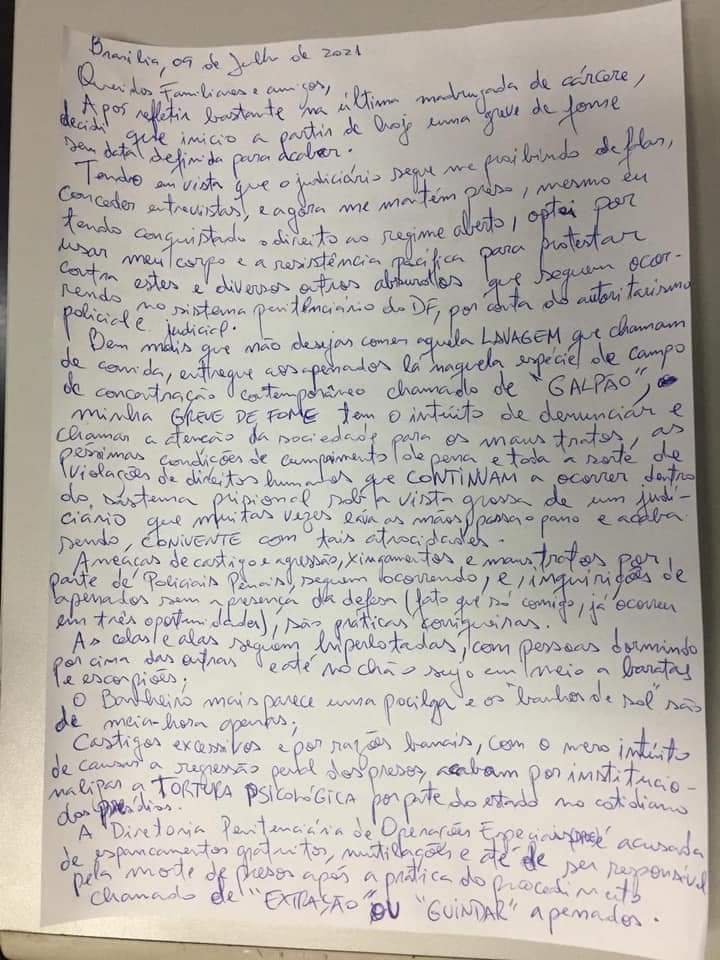 Brasília, 09 de Julho de 2021
Queridos Familiares e amigos,
Após refletir bastante na última madrugada de cárcere,
decidi que inicio a partir de hoje uma greve de fome
sem data definida para acabar.
Tendo em vista que o judiciário segue me proibindo de falar,
conceder entrevistas, e agora me mantém preso, mesmo eu
tendo conquistado o direito ao regime aberto, optei por
usar meu corpo e a resistência pacífica para protestar
contra estes e diversos outros absurdos que seguem ocor-
rendo no sistema penitenciário do DF, por conta do autoritarismo
policial e judicial.
Bem mais que não desejar comer aquela LAVAGEM que chamam
de comida, entregue aos apenados lá naquela espécie de campo
de concentração contemporâneo chamado de "GALPÃO",
minha GREVE DE FOME tem o intuito de denunciar e
chamar a atenção da sociedade para os maus tratos, as
péssimas condições de cumprimento de pena e toda a sorte de
violações de direitos humanos que CONTINUAM a ocorrer dentro
do sistema prisional sob a vista grossa de um judi-
ciário que muitas vezes lava as mãos, passa o pano e acaba
sendo CONIVENTE com tais atrocidades.
Ameaças de castigo e agressão, xingamentos e maus tratos por
parte de Policiais Penais, seguem ocorrendo, e, inquirições de
apenados sem a presença da defesa (fato que só comigo, já ocorreu
em três oportunidades), são práticas corriqueiras.
As celas e alas seguem hiperlotadas, com pessoas dormindo
por cima das outras e até no chão sujo em meio a baratas
e escorpiões;
O Banheiro mais parece uma pocilga e os "banhos de sol" são
de meia-hora apenas;
Castigos excessivos e por razões banais, com o mero intuito
de causar a regressão penal dos presos, acabam por institucio-
nalizar a TORTURA PSICOLÓGICA por parte do estado no cotidiano
dos presídios.
A Diretoria Penitenciária de Operações Especiais é acusada
de espancamentos gratuitos, mutilações e até de ser responsável
pela morte de presos após a prática do procedimento
chamado de "EXTRAÇÃO" OU "GUINDAR" apenados.